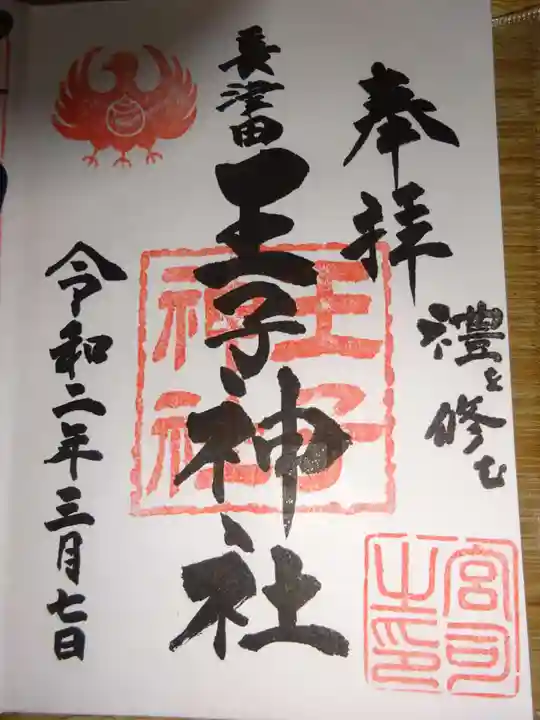 奉拝
禮を修む
長津田
王子神社
王子
神社
宮司
之印
令和二年三月七日